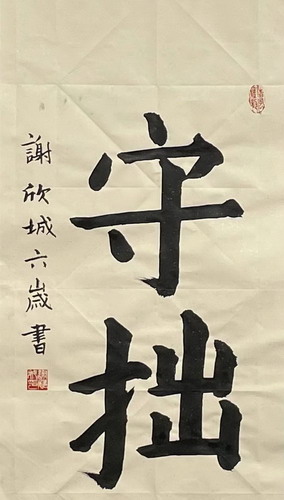 守拙
謝欣城六歲書